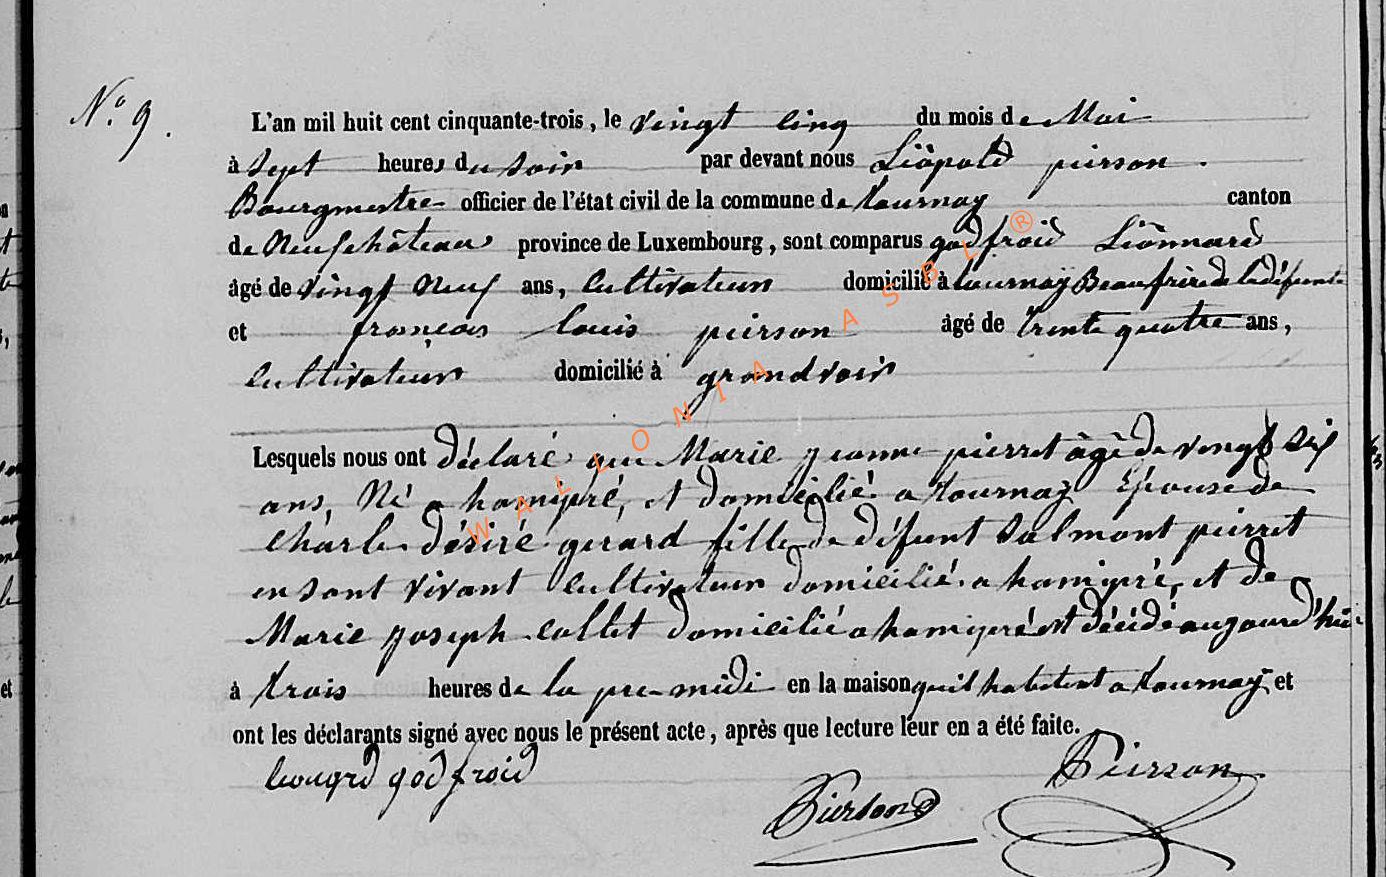 N.° 9.
L'an mil huit cent cinquante-trois, le vingt cinq du mois de Mai
à Sept heures du soir par devant nous Léopold pierson.
Bourgmestre officier de l'état civil de la commune de tournay canton
de Neufchâteau province de Luxembourg, sont comparus godfroid Léonnard
âgé de vingt neuf ans, Cultivateur domicilié à tournay Beaufrère de la défunte
et françois louis pierson âgé de trente quatre ans,
Cultivateur domicilié à grandvoir
Lesquels nous ont déclaré que Marie jeanne pierret âgé de vingt six
ans, Né a hamipré, et domicilié a tournay Epouse de
Charle désiré gerard fille de défunt Salmont pierret
en sont vivant Cultivateur domicilié a hamipré, et de
Marie joseph collet domicilié a hamipré est décidé aujourd'hui
à trois heures de la pre midi en la maison qu'il habitent a tournay, et
ont les déclarants signé avec nous le présent acte, après que lecture leur en a été faite.
leonard godfroid Pierson
Pierson
WALLONIA ASBL ®